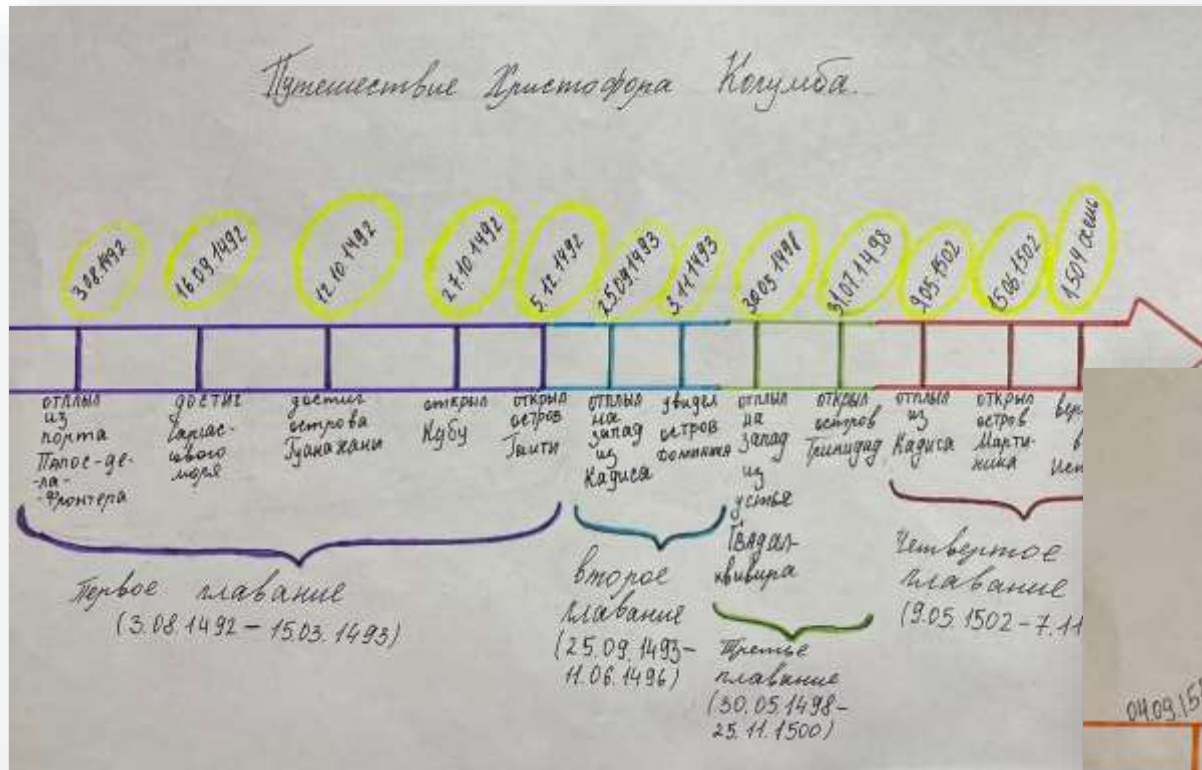 Путешествие Христофора Колумба.
3.08.1492
16.09.1492
12.10.1492
27.10.1492
5.12.1492
25.09.1493
3.11.1493
30.05.1498
31.07.1498
9.05.1502
15.06.1502
1504 осень
отплыл
из
порта
Палос-де-
-ла-
-Фронтера
достиг
Саргас-
сового
моря
достиг
острова
Гуанахани
открыл
Кубу
открыл
остров
Гаити
отплыл
на
запад
из
Кадиса
увидел
остров
Доминика
отплыл
на
запад
из
устья
Гвадал-
квивира
открыл
остров
Тринидад
отплыл
из
Кадиса
открыл
остров
Марти-
ника
вер
в
Исп
Первое плавание
(3.08.1492 – 15.03.1493)
второе
плавание
(25.09.1493-
11.06.1496)
Третье
плавание
(30.05.1498-
25.11.1500)
Четвертое
плавание
(9.05.1502-7.11
04.09.15